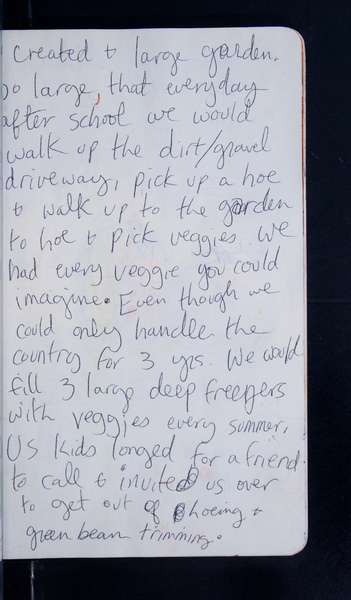 created & large garden.
So large, that everyday
after school we would
walk up the dirt/gravel
driveway, pick up a hoe
& walk up to the garden
to hoe & pick veggies. We
had every veggie you could
imagine. Even though we
could only handle the
country for 3 yrs. We would
fill 3 large deep freezers
with veggies every summer.
Us kids longed for a friend
to call & invite us over
to get out of hoeing &
green bean trimming.